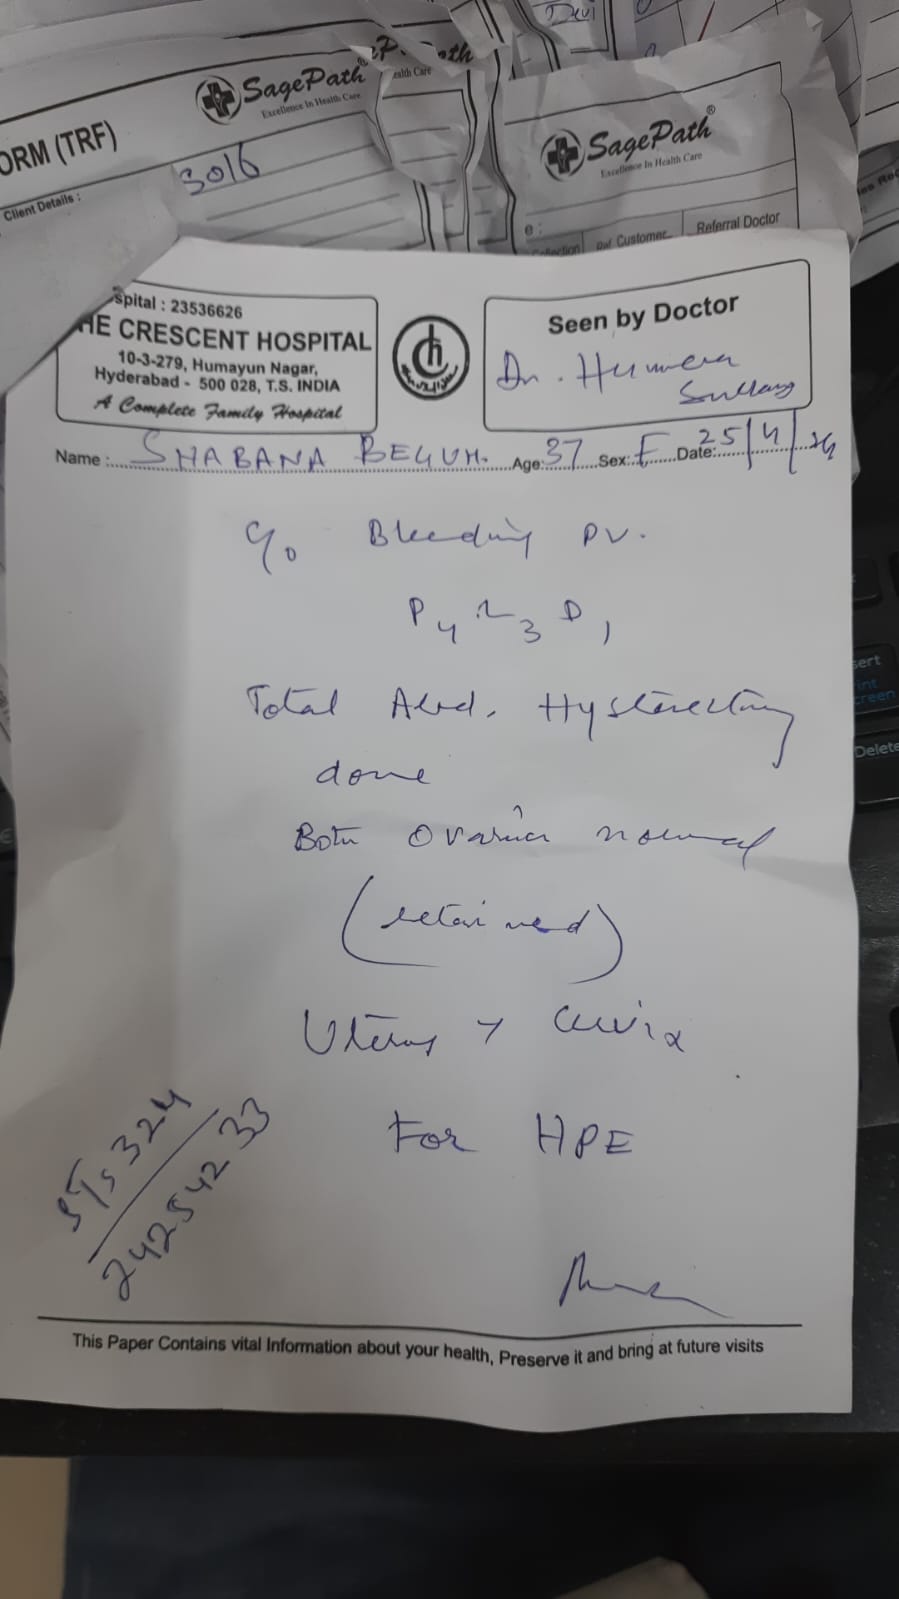 Devi
SagePath®
Excellence In Health Care
alth Care
ORM (TRF)
3016
Client Details :
SagePath®
Excellence In Health Care
e :
Collection
Ref. Customer
Referral Doctor
spital : 23536626
HE CRESCENT HOSPITAL
10-3-279, Humayun Nagar,
Hyderabad - 500 028, T.S. INDIA
A Complete Family Hospital
ch
Seen by Doctor
Dr. Humera
Name : SHABANA BEGUM. Age: 37 Sex: F Date: 25/4/24
C/o Bleeding PV.
P4 L3 D1
Total Abd. Hysterectomy
done
Both Ovaries normal
(retained)
Uterus & Cervix
For HPE
STS 324
24254233
This Paper Contains vital Information about your health, Preserve it and bring at future visits
sert
int
creen
Delete